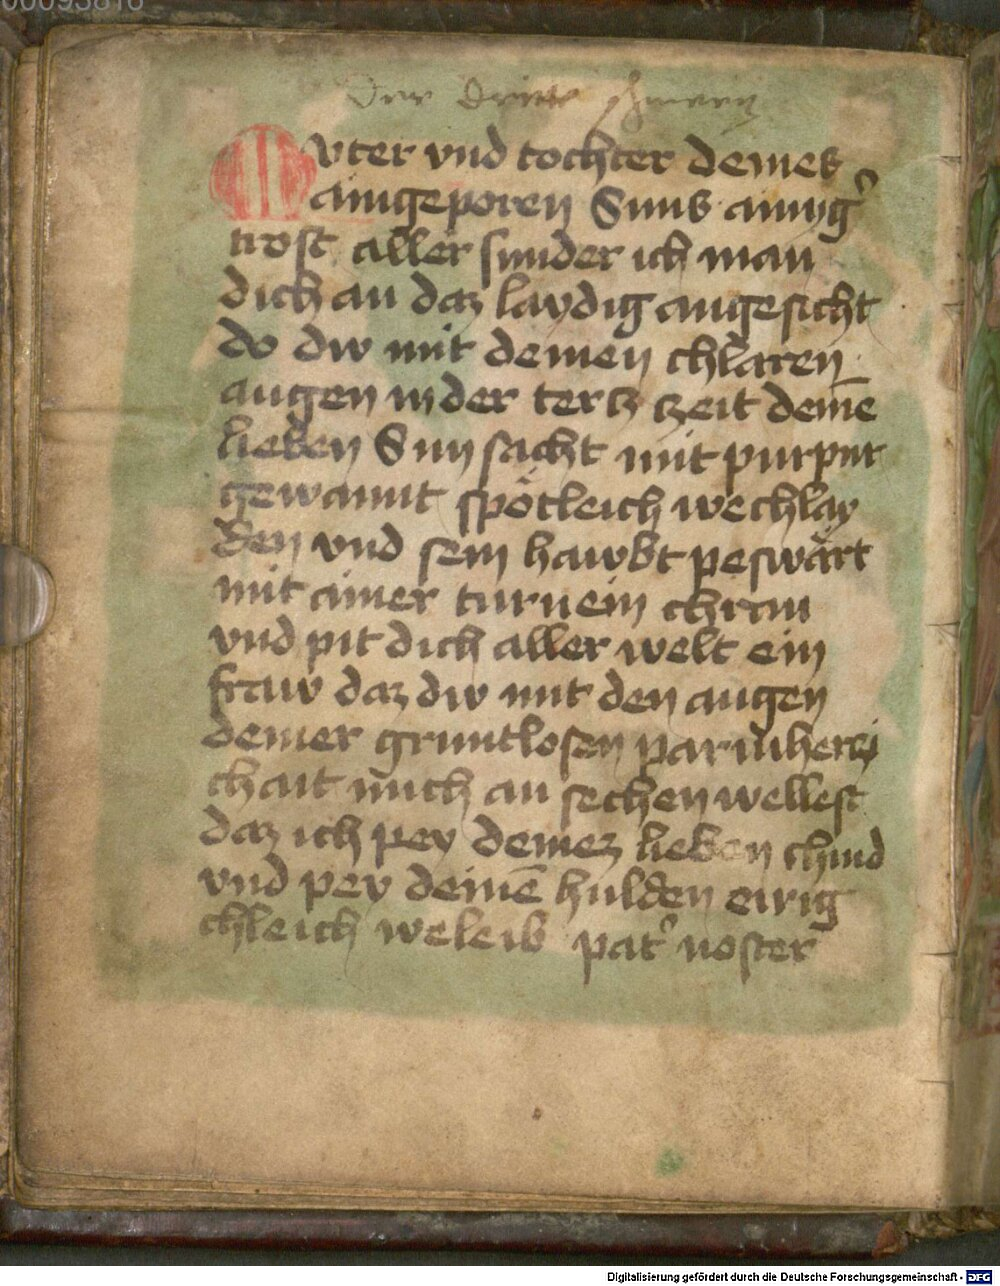 00093816
Der dritt schmercz
Mvter vnd tochter deines
aingeporen Suns ainyg᾽
trost aller sunder ich man
dich an daz laydig angesicht
do dw mit deinen chlaren
augen in der tertz tzeit deinē
lieben Sun sächt mit purpur
gewannt spötleich wechlay
den vnd sein hawbt peswärt
mit ainer turnein chran
vnd pit dich aller welt ein
fraw daz dw mit den augen
deiner gruntlosen parmhertzi
chait mich an sechen wellest
daz ich pey deinez lieben chind
vnd pey deinē hulden ewig
chleich weleib pat᾽ noster
Digitalisierung gefördert durch die Deutsche Forschungsgemeinschaft - DFG